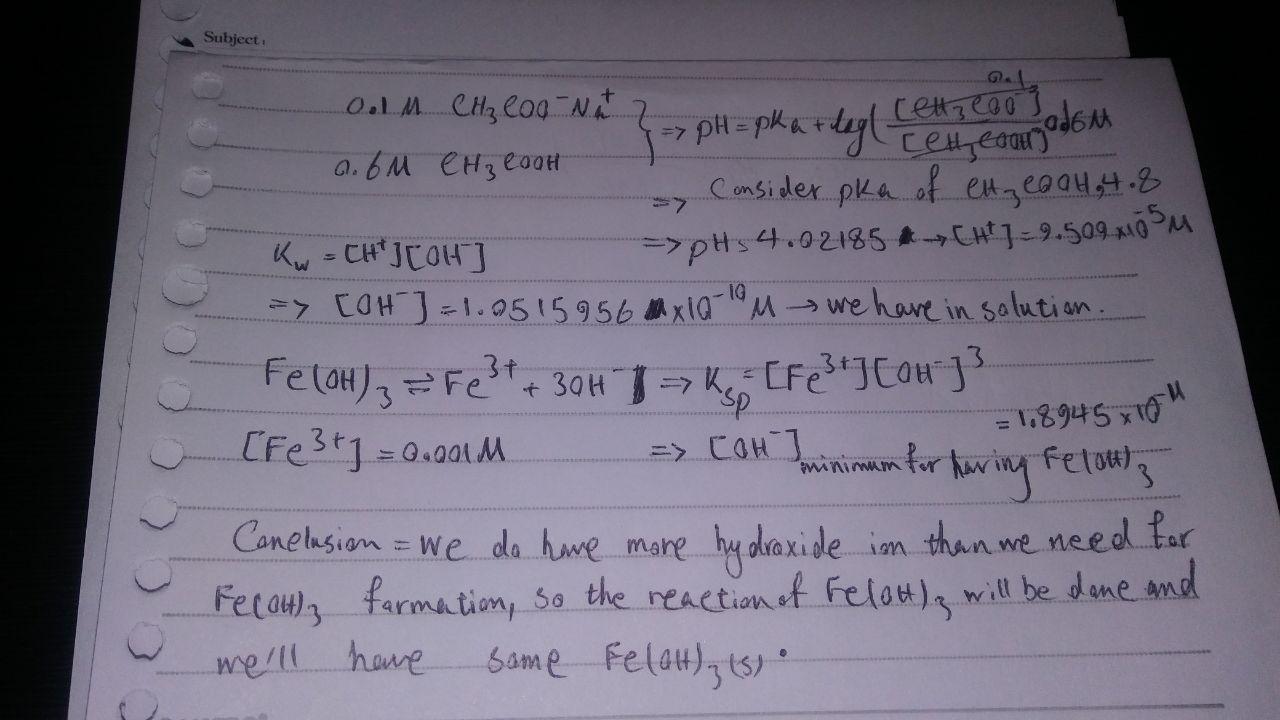 Subject:
0.1 M CH3COO⁻Na⁺ } => pH = pKa + log([CH3COO⁻] 0.1 / [CH3COOH] 0.6M
0.6M CH3COOH
=> Consider pKa of CH3COOH, 4.8
Kw = [H⁺][OH⁻] => pH = 4.02185 → [H⁺] = 9.509 x10⁻⁵ M
=> [OH⁻] = 1.0515956 x10⁻¹⁰ M → we have in solution.
Fe(OH)3 ⇌ Fe³⁺ + 3OH⁻ => Ksp = [Fe³⁺][OH⁻]³
= 1.8945 x 10⁻¹¹
[Fe³⁺] = 0.001M => [OH⁻] minimum for having Fe(OH)3
Conclusion = we do have more hydroxide ion than we need for
Fe(OH)3 formation, so the reaction of Fe(OH)3 will be done and
we'll have some Fe(OH)3(s).